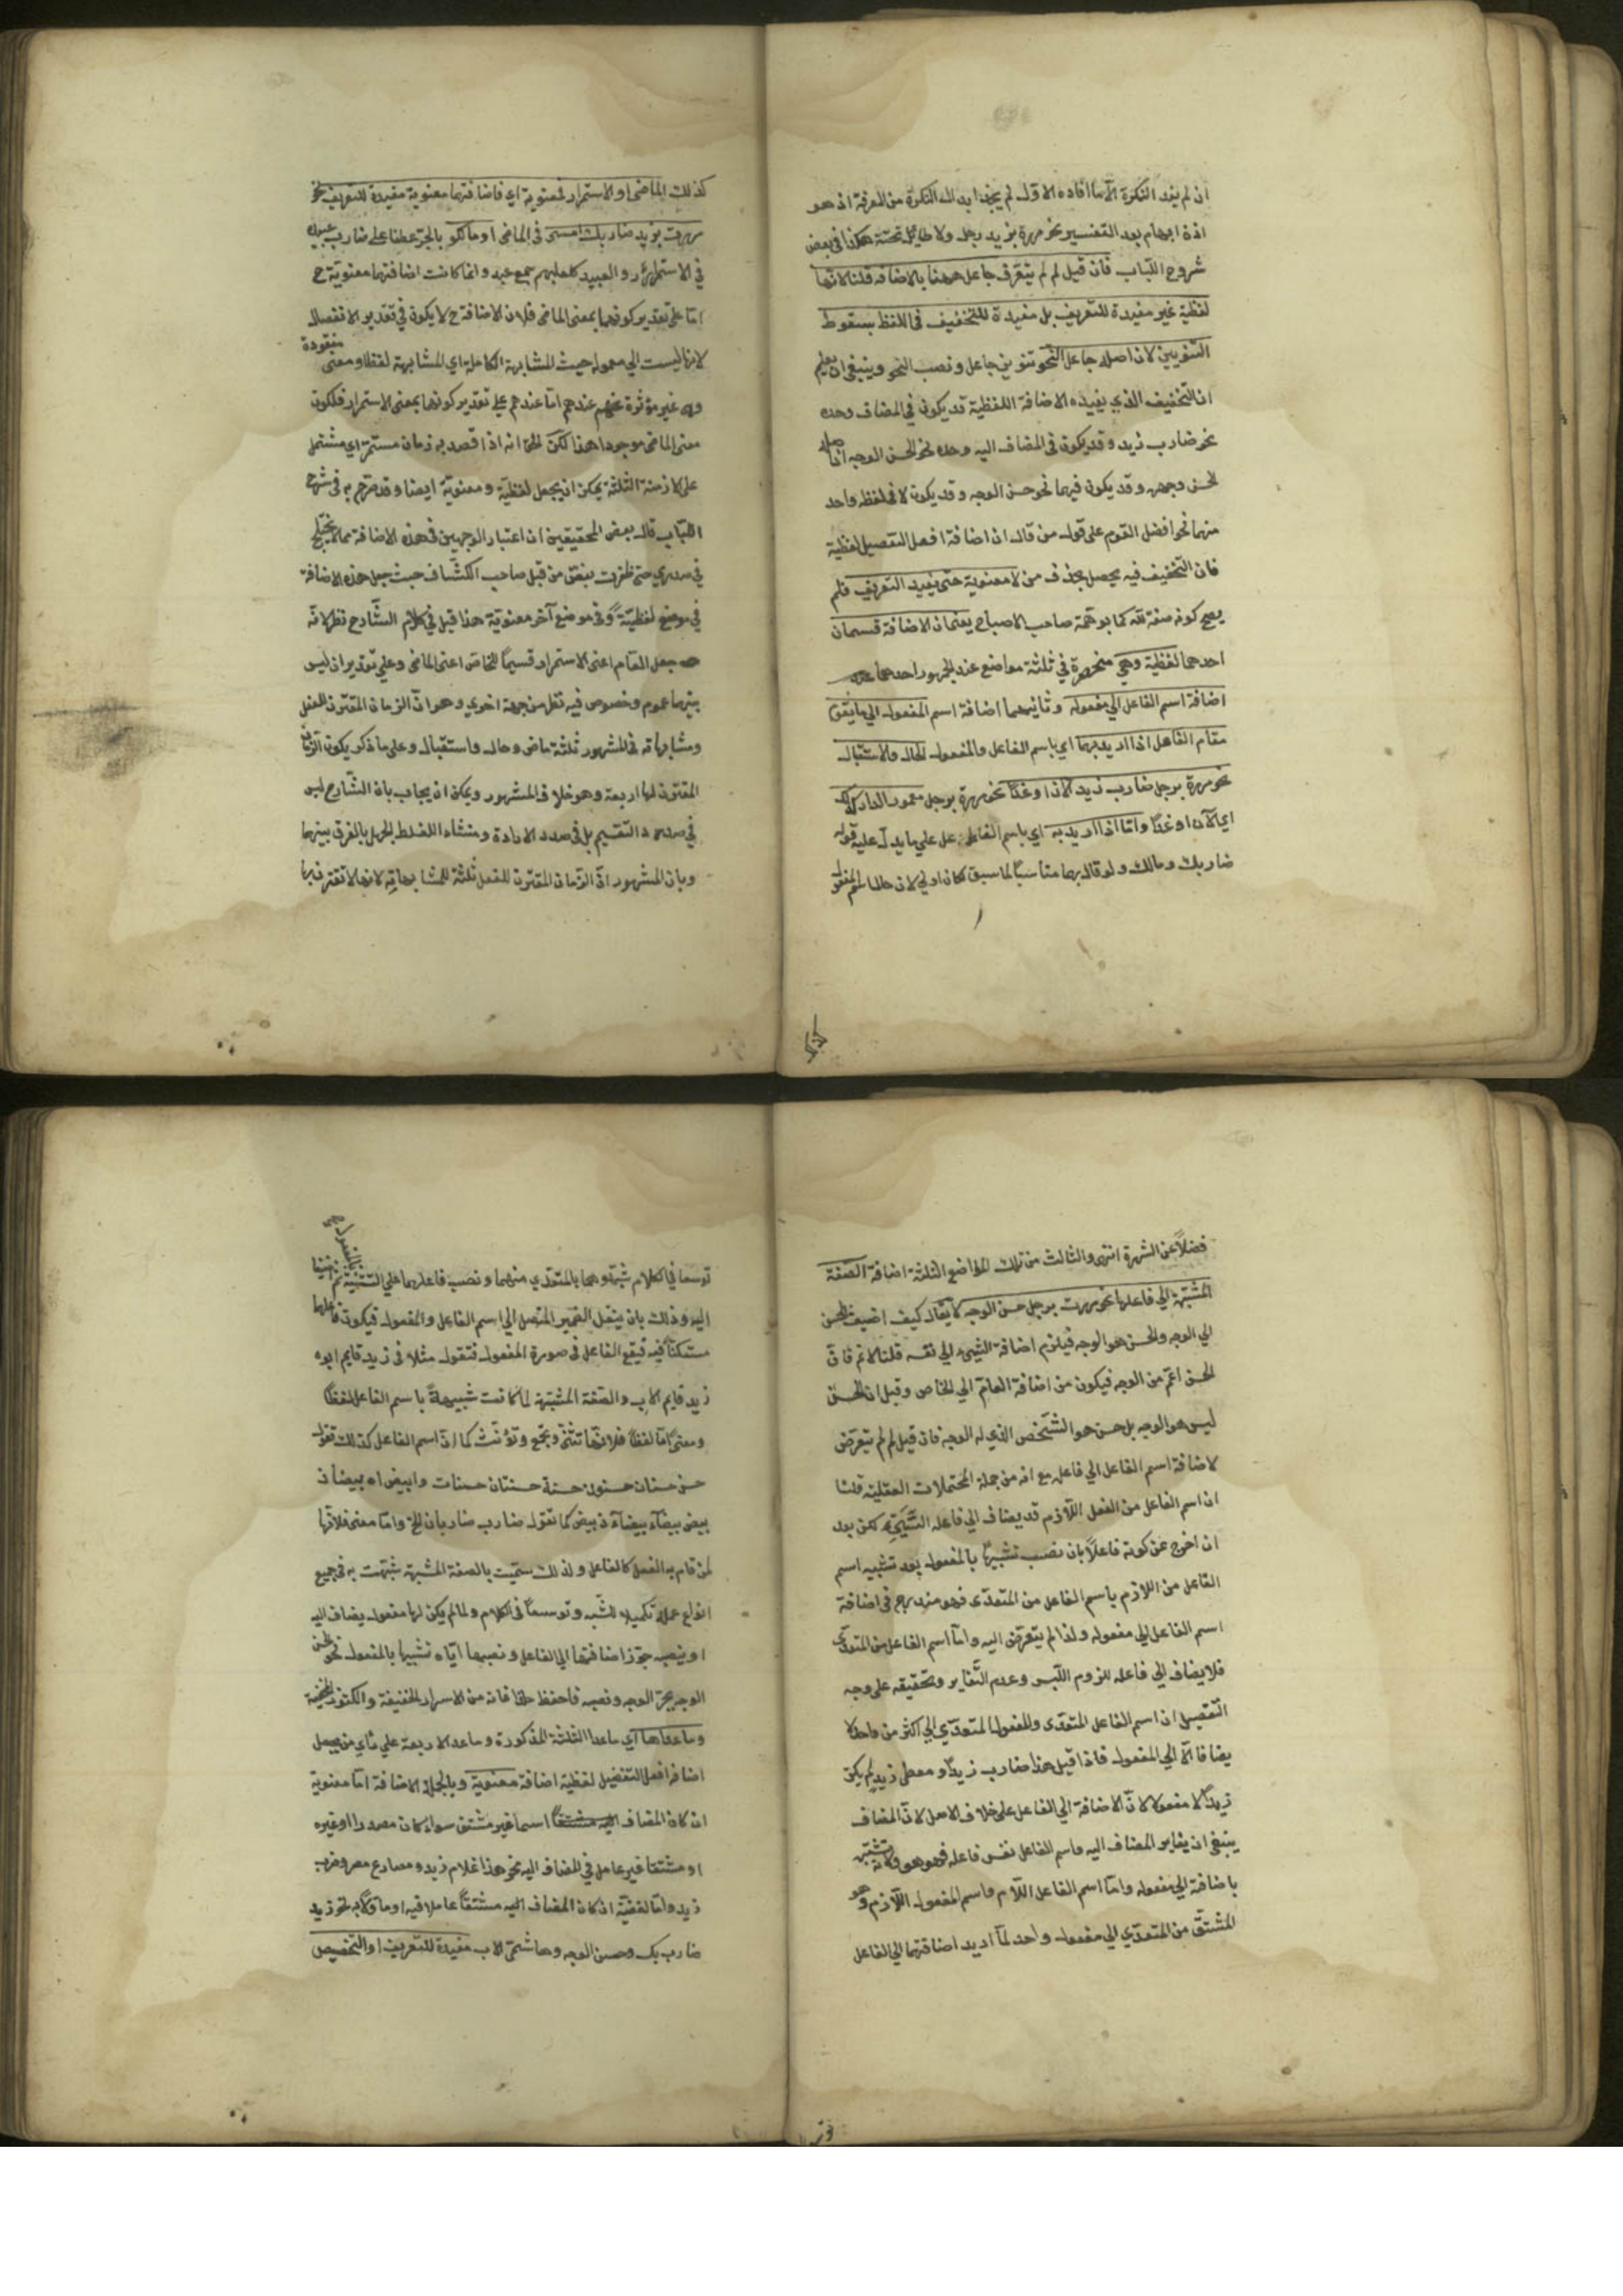 ان لم يفد النكرة الا ما افاده الاول لم يجز ابدال النكرة من المعرفة اذ هو
اذن ابهام بعد التفسير نحو مررة بزيد رجل ولا طايل تحته هكذا في بعض
شروح اللباب فان قيل لم لم يتعرف جاعل ههنا بالاضافه قلنا لانها
لفظية غير مفيدة للتعريف بل مفيدة للتخفيف في اللفظ بسقوط
التنوين لان اصله جاعل النحو تنوين جاعل ونصب النحو وينبغي ان يعلم
ان التخفيف الذي يفيده الاضافة اللفظية قد يكون في المضاف وحده
نحو ضارب زيد وقد يكون في المضاف اليه وحده نحو الحسن الوجه اذ اصله
الحسن وجهه وقد يكون فيهما نحو حسن الوجه وقد يكون لا في لفظ واحد
منهما نحو افضل القوم على قول من قال ان اضافة افعل التفصيل لفظية
فان التخفيف فيه يحصل بحذف من لا معنوية حتى يفيد التعريف فلم
يصح كونه صفة لله كما توهمة صاحب الاصباح يعنى ان الاضافة قسمان
احدهما لفظية وهي منحصرة في ثلثة مواضع عند الجمهور احدهما
اضافة اسم الفاعل الي مفعوله وثانيهما اضافة اسم المفعول الي ما يقوم
مقام الفاعل اذا اريد بهما اي باسم الفاعل والمفعول الحال والاستقبال
نحو مررة برجل ضارب زيد الان او غدًا نحو مررة برجل معمور الدار كذلك
اي الآن او غدًا وامّا اذا اريد به اي باسم الفاعل علي ما يدل عليه قوله
ضاربك ومالك ولو قال بهما مناسبًا لما سبق لكان اولي لان حال اسم المفعول
كذلك
كذلك الماضى او الاستمرار فمعنوية اي فاضافتهما معنوية مفيدة للتعريف نحو
مررت بزيد ضاربك امس في الماضى او مالك بالجر عطفا على ضاربك عبيدك
في الاستمرار والعبيد كعليهم جمع عبد وانما كانت اضافتهما معنوية ح
امّا على تقدير كونهما بمعنى الماضى فلان الاضافة ح لا يكون في تقدير الانفصال
لانها ليست الي معموله حيث المشابهة الكاملة اي المشابهة لفظا ومعنى مفقودة
وهى غير مؤثرة عندهم امّا عندهم على تقدير كونها بمعنى الاستمرار فلكون
معنى الماضى موجودا هذا لكن الحق انه اذا قصد به زمان مستمر اي مشتمل
على الازمنة الثلثة يمكن ان يجعل لفظية ومعنوية ايضا وقد صرّح به في شرح
اللباب قال بعض المحققين ان اعتبار الوجهين في هذه الاضافة مما لا يختلج
في صدري حتى ظفرت بنقل من قبل صاحب الكشّاف حيث جعل هذه الاضافة
في موضع لفظيّة وفي موضع آخر معنوية هذا قيل في كلام الشّارح نظر لانه
جعل العام اعنى الاستمرار قسيمًا للخاص اعنى الماضى وعلي تقدير ان ليس
بينهما عموم وخصوص فيه نظر من جهة اخري وهو ان الزمان المقترن للفعل
ومشابهاته في المشهور ثلثة ماض وحال واستقبال وعلى ما ذكر يكون الزمان
المقترن لها اربعة وهو خلاف المشهور ويمكن ان يجاب بان الشّارح ليس
في صدد التقسيم بل في صدد الارادة ومنشاء الغلط الجهل بالفرق بينهما
وبان المشهور انّ الزمان المقترن للفعل ثلثة لا لمشابهاته لانها لا تقترن بها
فضلًا عن الشهرة انتهى والثالث من تلك المواضع الثلثة اضافة الصّفة
المشبّهة الي فاعلها نحو مررت برجل حسن الوجه لا يقال كيف اضيف الحسن
الي الوجه والحسن هو الوجه فيلزم اضافة الشيء الي نفسه قلنا لا نم فانّ
الحسن اعمّ من الوجه فيكون من اضافة العام الي الخاص وقيل ان الحسن
ليس هو الوجه بل حسن هو الشّخص الذي له الوجه فان قيل لم لم يتعرّض
لاضافة اسم الفاعل الي فاعله مع انه من جملة المحتملات العقلية قلنا
ان اسم الفاعل من الفعل اللّازم قد يضاف الي فاعله لكن بعد
ان اخرج عن كونه فاعلًا بان نصب تشبيهًا بالمفعول بعد تشبيه اسم
الفاعل من اللازم باسم الفاعل من المتعدّى فهو مندرج في اضافة
اسم الفاعل الي مفعوله ولذا لم يتعرّض اليه وامّا اسم الفاعل من المتعدّي
فلا يضاف الي فاعله للزوم اللّبس وعدم التّغاير وتحقيقه على وجه
التّفصيل ان اسم الفاعل المتعدّى والمفعول المتعدّي الي اكثر من واحد لا
يضافا الّا الي المفعول فاذا قيل هذا ضارب زيد ومعطى زيد لم يكن
زيد الا مفعولا لانّ الاضافة الي الفاعل على خلاف الاصل لانّ المضاف
ينبغي ان يغاير المضاف اليه واسم الفاعل نفس فاعله فهو هو
باضافة الي مفعوله وامّا اسم الفاعل اللّازم واسم المفعول اللّازم وهو
المشتقّ من المتعدّي الي مفعول واحد لمّا اريد اضافتهما الي الفاعل
توسعا في الكلام شبّهوهما بالمتعدّي منهما ونصب فاعلهما علي التشبيه بالمفعول ثم اضيفا
اليه وذلك بان ينقل الضمير المتصل الي اسم الفاعل والمفعول فيكون فاعلهما
مستكنًّا فيه فيقع الفاعل في صورة المفعول فتقول مثلا في زيد قايم ابوه
زيد قايم الاب والصّفة المشبّهة لما كانت شبيهةً باسم الفاعل لفظًا
ومعنى امّا لفظًا فلانّها تثنّى وتجمع وتؤنّث كما انّ اسم الفاعل كذلك تقول
حسن حسنان حسنون حسنة حسنتان حسنات وابيض ابيضان
بيض بيضآء بيضآن بيض كما تقول ضارب ضاربان الخ وامّا معنى فلانّها
لمن قام به الفعل كالفاعل ولذلك سمّيت بالصفة المشبهة شبّهت به في جميع
انواع عمله تكميلا للشّبه وتوسعًا في الكلام ولما لم يكن لها مفعول يضاف اليه
او ينصبه جوّز اضافتها الي الفاعل ونصبها ايّاه تشبيها بالمفعول نحو الحسن
الوجه بجرّ الوجه ونصبه فاحفظ هذا فانه من الاسرار الخفيفة والكنوز المخفية
وماعداها اي ماعدا الثلثة المذكورة وماعدا الاربعة علي رأي من يجعل
اضافة افعل التفضيل لفظية اضافة معنوية وبالجملة الاضافة امّا معنوية
ان كان المضاف اسما غير مشتق سواء كان مصدرا او غيره
او مشتقا غير عامل في المضاف اليه نحو هذا غلام زيد ومصارع مصر وضرب
زيد وامّا لفظيّة ان كان المضاف اليه مشتقًا عاملا فيه او مأوّلا به نحو زيد
ضاربك وحسن الوجه وهاشميّ الاب مفيدة للتعريف او التخصيص